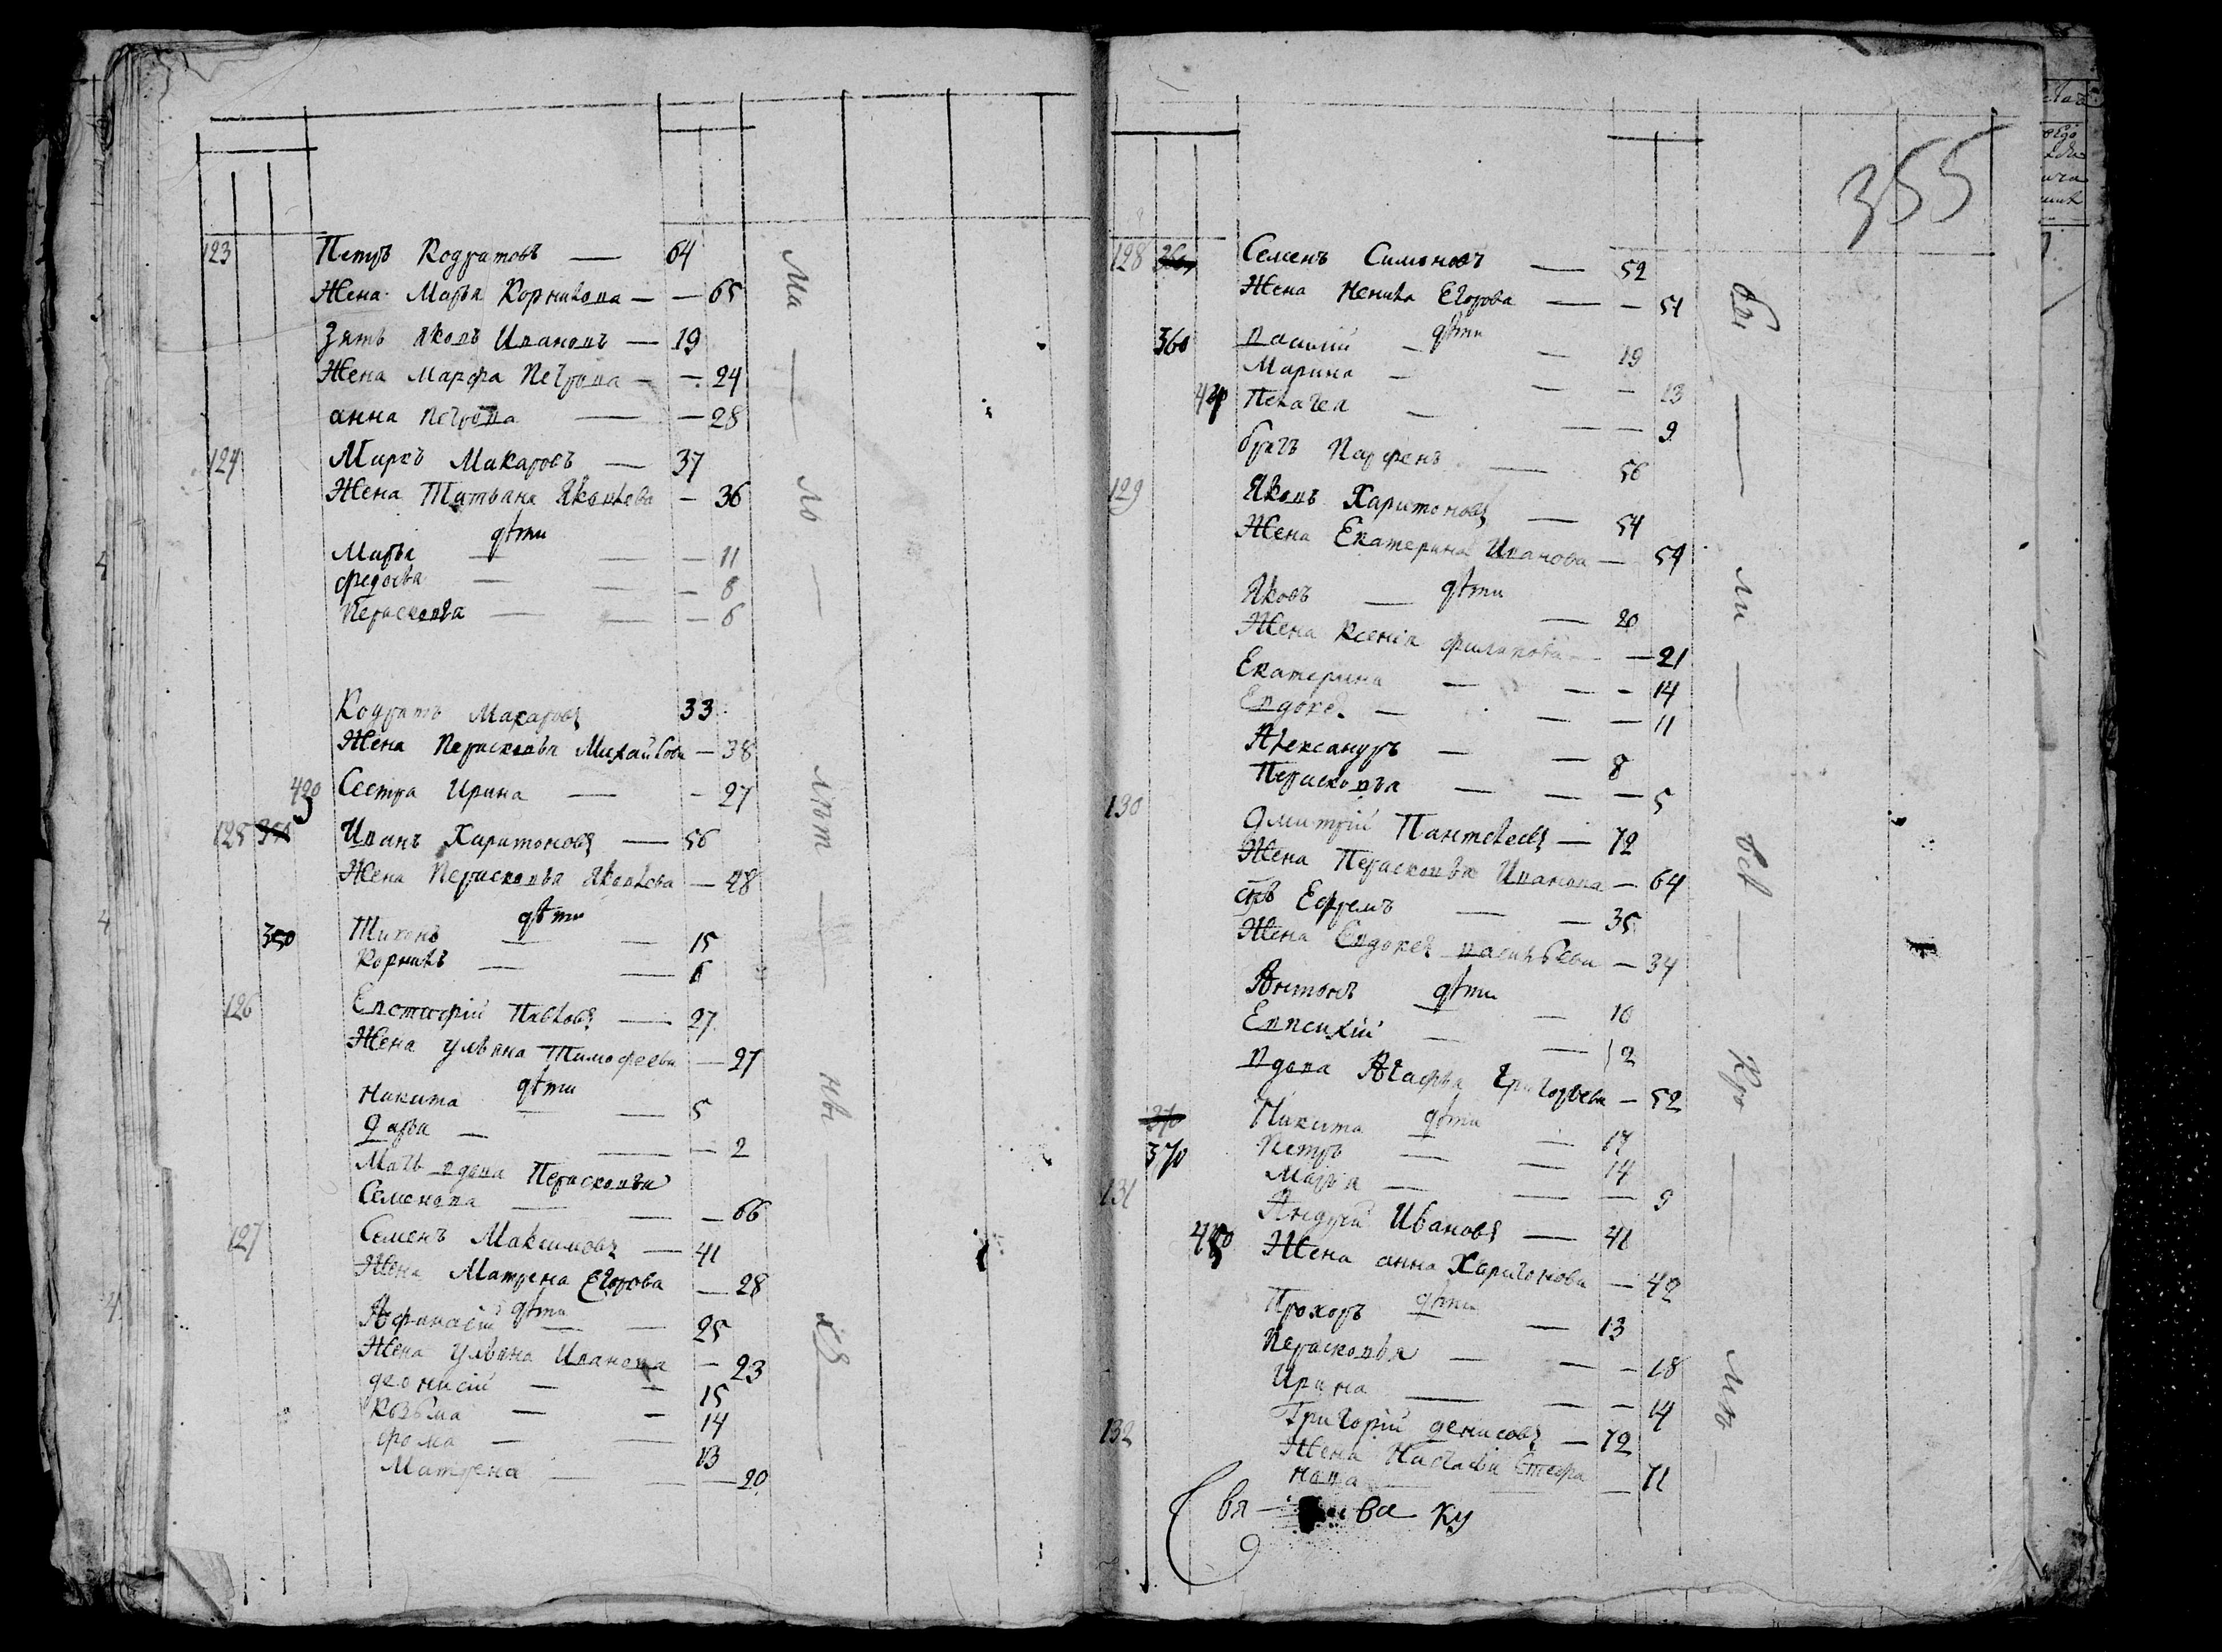 123 Петръ Кодратовъ — 64
Жена Марья Корнилова — — 65
Зять Яковъ Ивановъ — 19
Жена Марфа Петрова — — 24
анна Петрова — — 28
124 Маркъ Макаровъ — 37
Жена Татьяна Яковлева — 36
дѣти
Марья — — — 11
Федосья — — — 8
Пераскопья — — — 6
Кодратъ Макаровъ 33
Жена Пераскопья Михайлова — 38
420 Сестра Ирина — — 27
125 Иванъ Харитоновъ — 56
Жена Пераскопья Яковлева — 48
дѣти
350 Тихонъ — — 15
Корнилъ — — 6
126 Евстафій Павловъ — 27
Жена Ульяна Тимофеева — 27
дѣти
Никита — 5
Дарья — — — 2
Мать вдова Пераскопья
Семенова — — — 66
127 Семенъ Максимовъ — 41
Жена Матрена Егорова — 28
дѣти
Афанасій — — 25
Жена Ульяна Иванова — 23
Деонисій — — 15
Козьма — — 14
Фома — — 13
Матрена — — — 20
Ма — ло — лѣт — ны — хъ —
355
128 Семенъ Симоновъ — 52
Жена Ненила Егорова — — 51
дѣти
360 Василій — — 19
Марина — — — 13
Пелагея — — — 9
братъ Парфенъ — 56
129 Яковъ Харитоновъ — 54
Жена Екатерина Иванова — 54
дѣти
Яковъ — — 20
Жена Ксенія Филипова — — 21
Екатерина — — — 14
Евдоке — — — 11
Александръ — — 8
Пераскопья — — — 5
130 Дмитрій Пантелеевъ — 72
Жена Пераскопья Иванова — 64
снъ Ефремъ — — 35
Жена Евдокея Васильева — 34
дѣти
Антонъ — 10
Евсихій — — 2
вдова Агафья Григорьева — 52
дѣти
370 Никита — 17
370 Петръ — — 14
Марья — — — 9
131 Андрей Ивановъ — 41
Жена анна Харитонова — 42
дѣти
Прохоръ — 13
Пераскопья — — — 18
Ирина — — — 14
132 Григорій Денисовъ — 72
Жена Наталья Стефа
нова — — 71